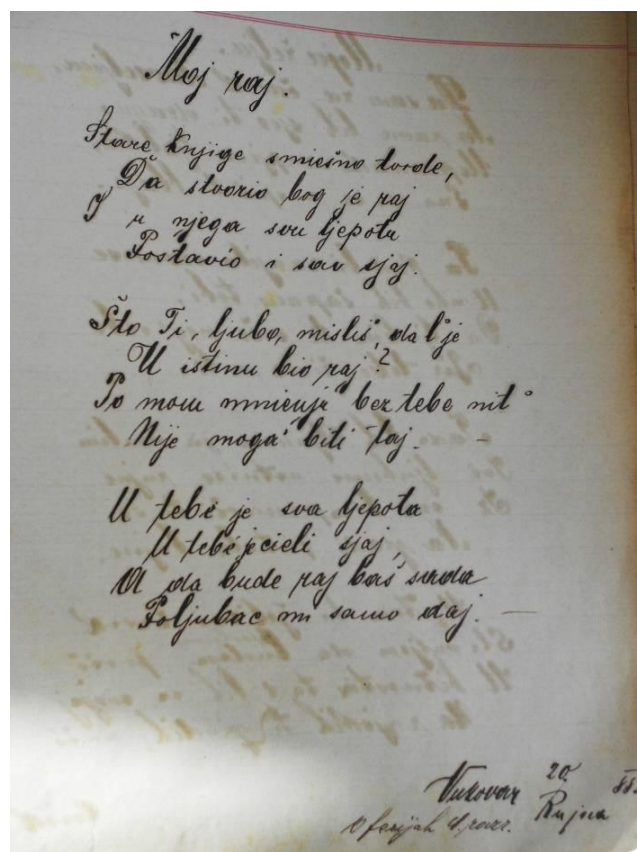 Moj raj.
Stare knjige smiešno tvrde,
Da stvorio bog je raj
I u njega svu ljepotu
Postavio i sav sjaj.
Što Ti, ljubo, misliš, da l' je
U istinu bio raj?
Po mom mnienju bez tebe nit'
Nije moga' biti taj. —
U tebi je sva ljepota
U tebi je cieli sjaj,
A da bude raj baš sada
Poljubac mi samo daj. —
Vukovar 20. Rujna